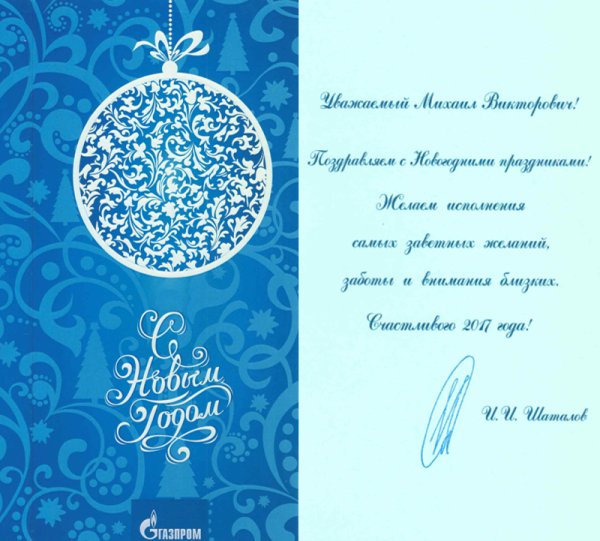 С
Новым
Годом
ГАЗПРОМ
Уважаемый Михаил Викторович!
Поздравляем с Новогодними праздниками!
Желаем исполнения
самых заветных желаний,
заботы и внимания близких.
Счастливого 2017 года!
И. И. Шаталов